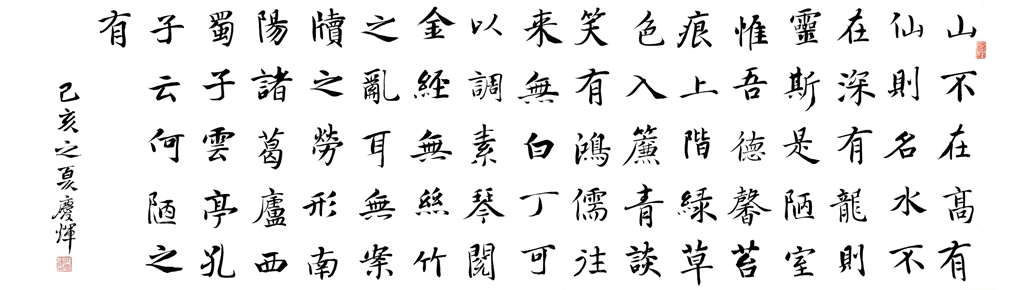 山不在高有
仙則名水不
在深有龍則
靈斯是陋室
惟吾德馨苔
痕上階綠草
色入簾青談
笑有鴻儒往
来無白丁可
以調素琴閱
金經無絲竹
之亂耳無案
牘之勞形南
陽諸葛廬西
蜀子雲亭孔
子云何陋之
有
己亥之夏慶煇